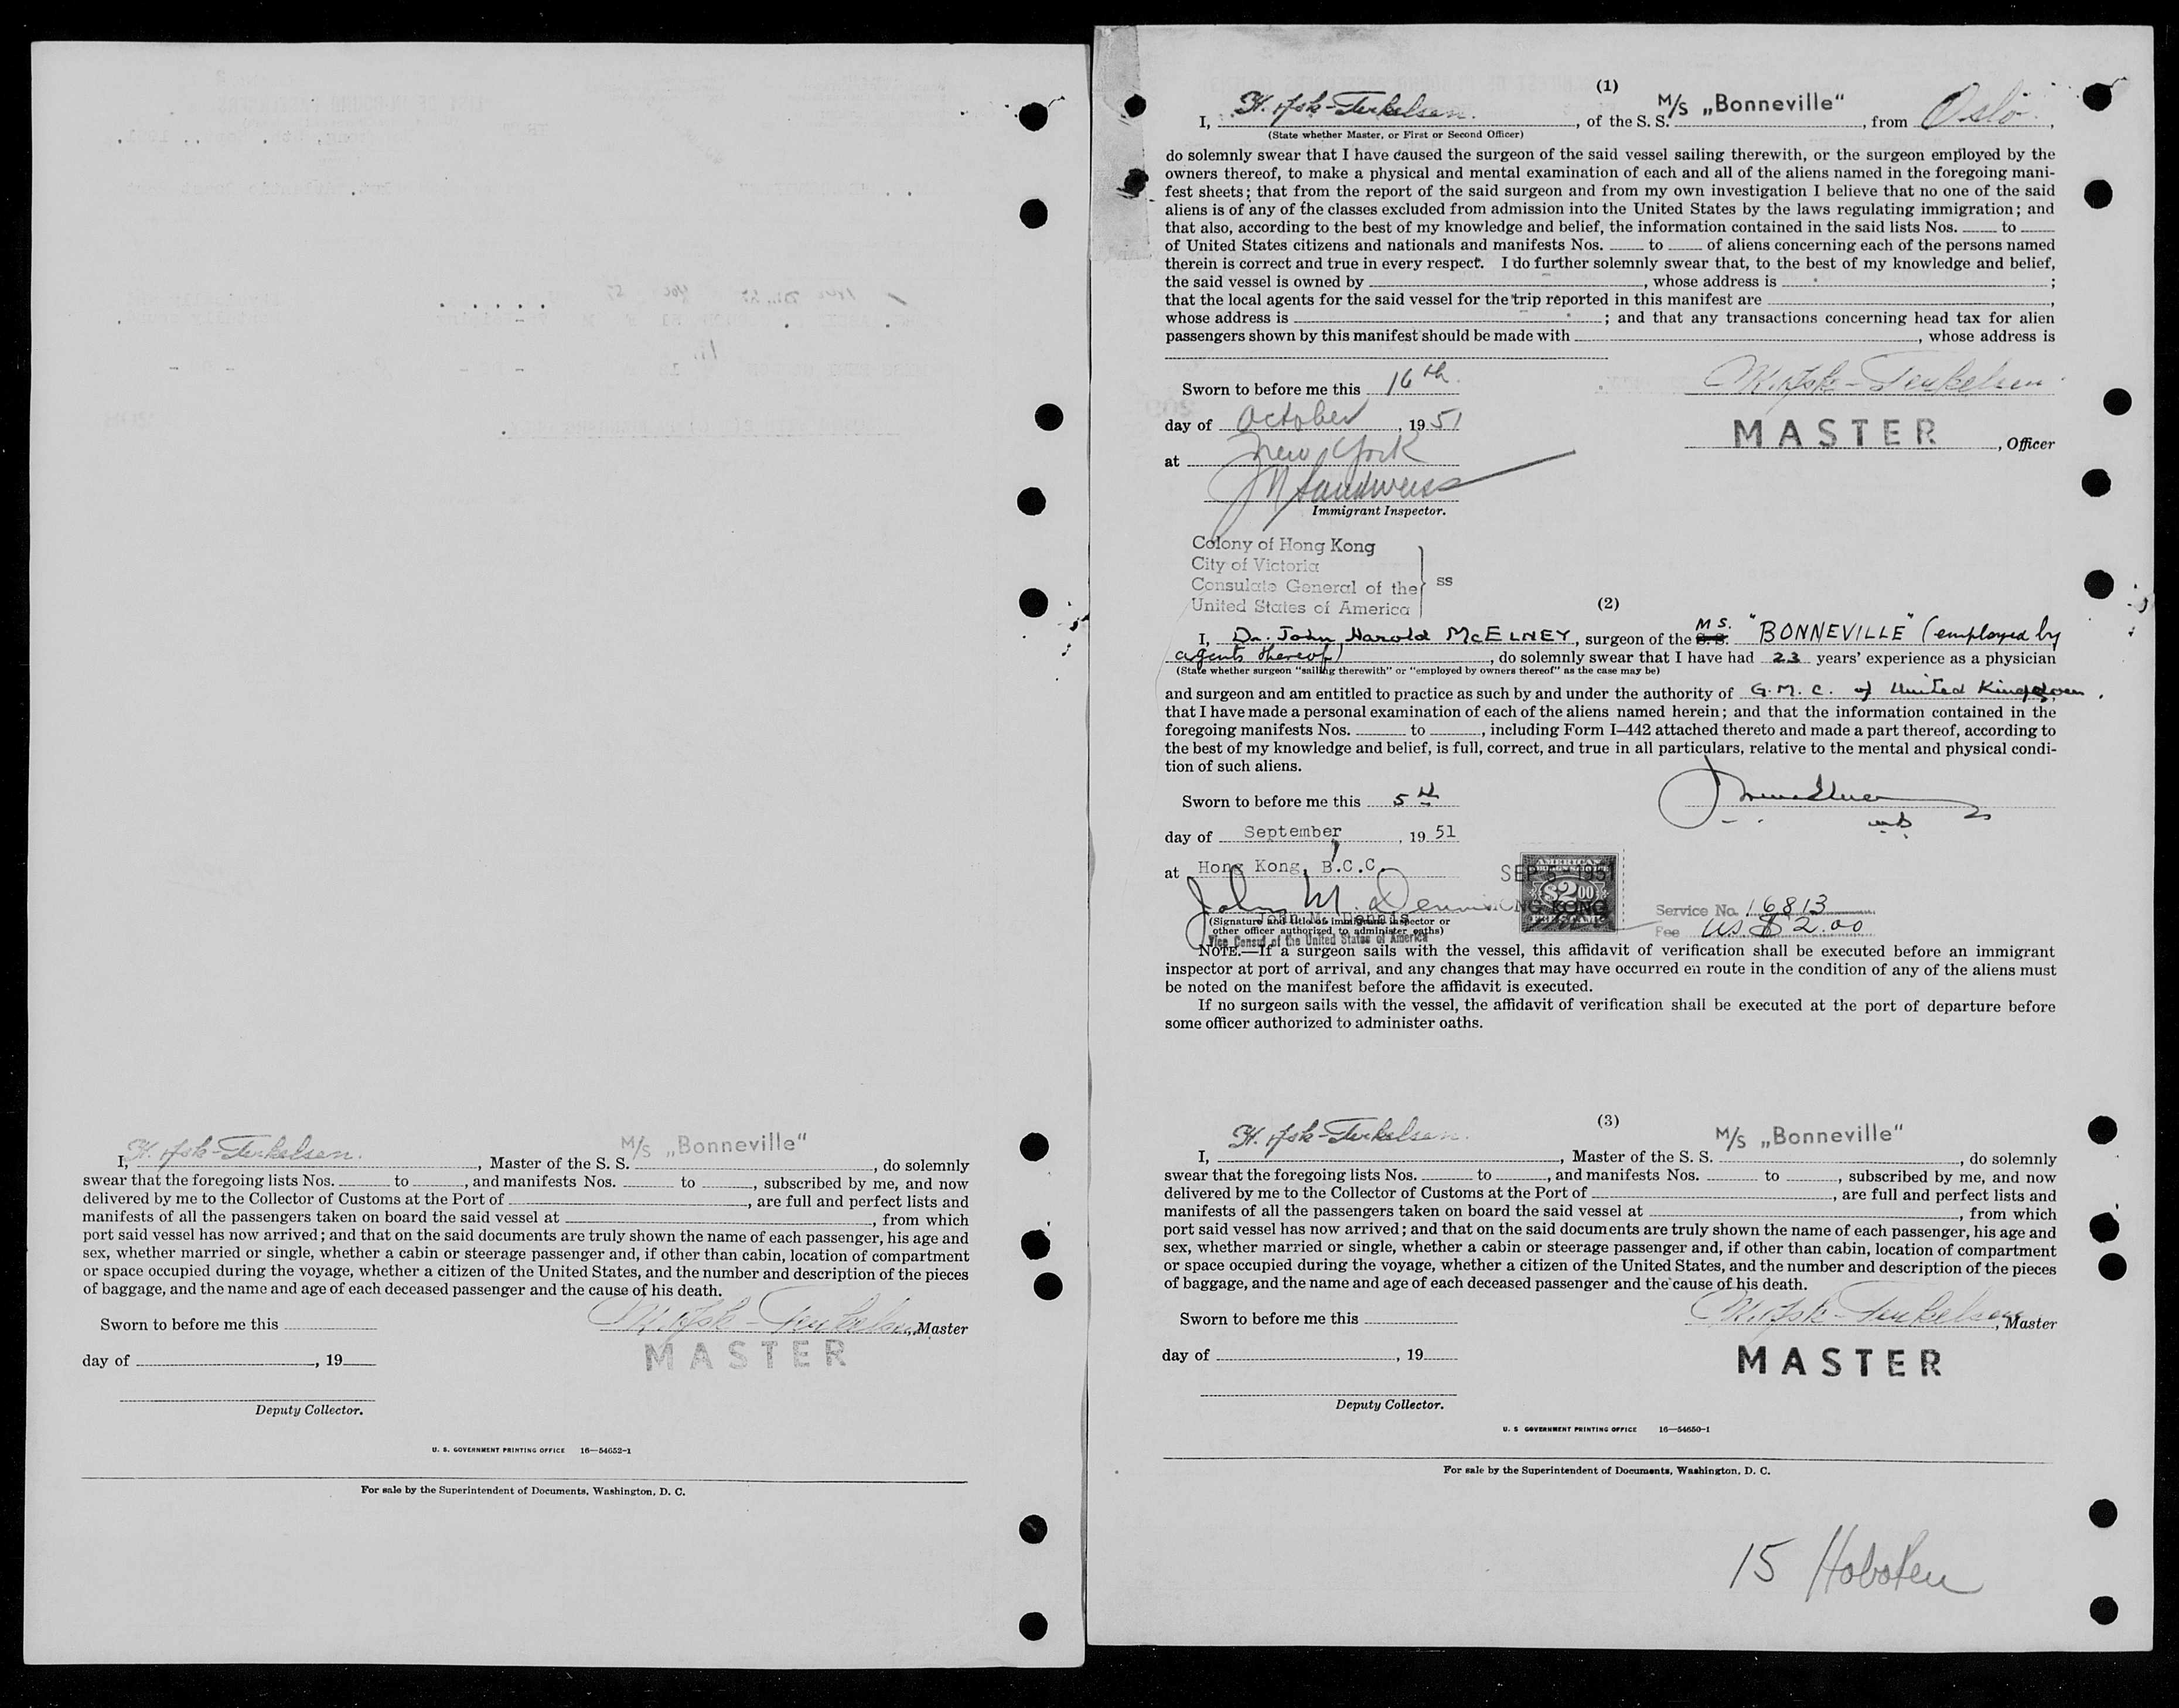 I, , Master of the S. S. M/S „Bonneville“, do solemnly
swear that the foregoing lists Nos. to , and manifests Nos. to , subscribed by me, and now
delivered by me to the Collector of Customs at the Port of , are full and perfect lists and
manifests of all the passengers taken on board the said vessel at , from which
port said vessel has now arrived; and that on the said documents are truly shown the name of each passenger, his age and
sex, whether married or single, whether a cabin or steerage passenger and, if other than cabin, location of compartment
or space occupied during the voyage, whether a citizen of the United States, and the number and description of the pieces
of baggage, and the name and age of each deceased passenger and the cause of his death.
Sworn to before me this
, Master
MASTER
day of , 19
Deputy Collector.
U. S. GOVERNMENT PRINTING OFFICE 16—54652-1
For sale by the Superintendent of Documents, Washington, D. C.
(1)
I, , of the S. S. M/S „Bonneville“, from Oslo,
(State whether Master, or First or Second Officer)
do solemnly swear that I have caused the surgeon of the said vessel sailing therewith, or the surgeon employed by the
owners thereof, to make a physical and mental examination of each and all of the aliens named in the foregoing mani-
fest sheets; that from the report of the said surgeon and from my own investigation I believe that no one of the said
aliens is of any of the classes excluded from admission into the United States by the laws regulating immigration; and
that also, according to the best of my knowledge and belief, the information contained in the said lists Nos. to
of United States citizens and nationals and manifests Nos. to of aliens concerning each of the persons named
therein is correct and true in every respect. I do further solemnly swear that, to the best of my knowledge and belief,
the said vessel is owned by , whose address is ;
that the local agents for the said vessel for the trip reported in this manifest are ,
whose address is ; and that any transactions concerning head tax for alien
passengers shown by this manifest should be made with , whose address is
Sworn to before me this 16th
day of October, 1951
MASTER, Officer
at New York
Sandweiss
Immigrant Inspector.
Colony of Hong Kong
City of Victoria
Consulate General of the
United States of America
ss
(2)
I, Dr. John Harold McELNEY, surgeon of the S. S. M S. "BONNEVILLE" (employed by
agents thereof), do solemnly swear that I have had 23 years' experience as a physician
(State whether surgeon "sailing therewith" or "employed by owners thereof" as the case may be)
and surgeon and am entitled to practice as such by and under the authority of G. M. C. of United Kingdom,
that I have made a personal examination of each of the aliens named herein; and that the information contained in the
foregoing manifests Nos. to , including Form I–442 attached thereto and made a part thereof, according to
the best of my knowledge and belief, is full, correct, and true in all particulars, relative to the mental and physical condi-
tion of such aliens.
Sworn to before me this 5th
day of September, 1951
at Hong Kong, B.C.C.
SEP 5 1951
HONG KONG
AMERICAN
$2.00
Service No. 16813
Fee US $ 2.00
John M. Dennis
(Signature and title of immigrant inspector or
John M. Dennis
other officer authorized to administer oaths)
Vice Consul of the United States of America
NOTE.—If a surgeon sails with the vessel, this affidavit of verification shall be executed before an immigrant
inspector at port of arrival, and any changes that may have occurred en route in the condition of any of the aliens must
be noted on the manifest before the affidavit is executed.
If no surgeon sails with the vessel, the affidavit of verification shall be executed at the port of departure before
some officer authorized to administer oaths.
(3)
I, , Master of the S. S. M/S „Bonneville“, do solemnly
swear that the foregoing lists Nos. to , and manifests Nos. to , subscribed by me, and now
delivered by me to the Collector of Customs at the Port of , are full and perfect lists and
manifests of all the passengers taken on board the said vessel at , from which
port said vessel has now arrived; and that on the said documents are truly shown the name of each passenger, his age and
sex, whether married or single, whether a cabin or steerage passenger and, if other than cabin, location of compartment
or space occupied during the voyage, whether a citizen of the United States, and the number and description of the pieces
of baggage, and the name and age of each deceased passenger and the cause of his death.
Sworn to before me this
, Master
MASTER
day of , 19
Deputy Collector.
U. S GOVERNMENT PRINTING OFFICE 16—54650-1
For sale by the Superintendent of Documents, Washington, D. C.
15 Hoboken